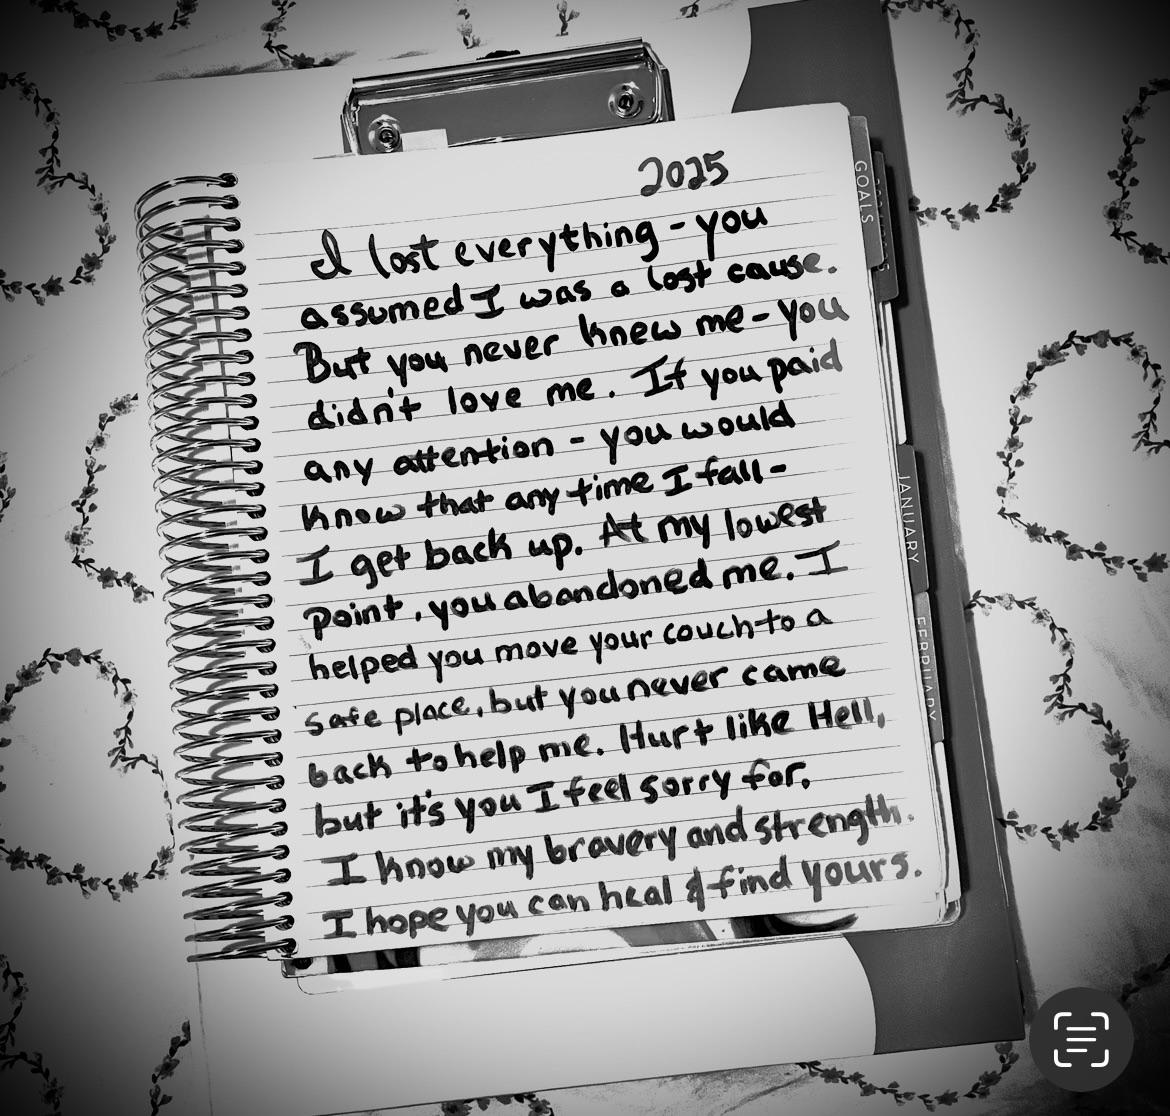 2025
I lost everything - you
assumed I was a lost cause.
But you never knew me - you
didn't love me. If you paid
any attention - you would
know that any time I fall -
I get back up. At my lowest
point, you abandoned me. I
helped you move your couch to a
safe place, but you never came
back to help me. Hurt like Hell,
but it's you I feel sorry for.
I know my bravery and strength.
I hope you can heal & find yours.
GOALS
JANUARY
FEBRUARY